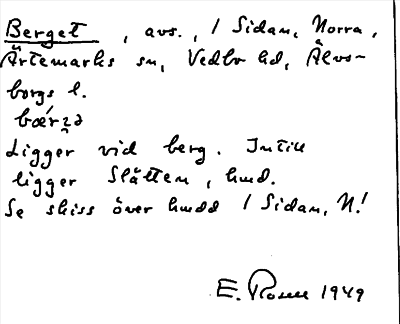 Berget, avs., / Sidan, Norra,
Ärtemarks sn, Vedbo hd, Älvs-
borgs l.
bær̀ʒə
Ligger vid berg. Intill
ligger Slätten, hmd.
Se skiss över hmdd / Sidan, N!
E. Rosell 1949